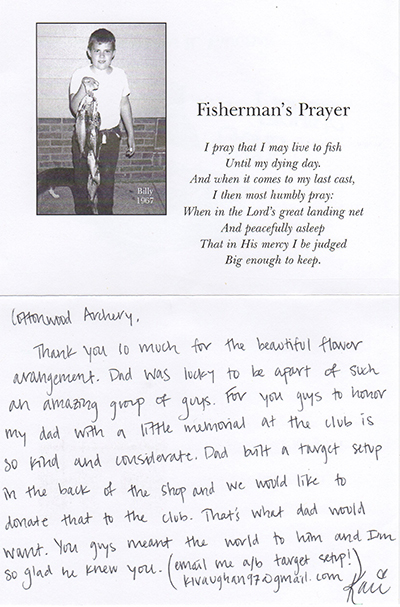 Billy
1967
Fisherman's Prayer
I pray that I may live to fish
Until my dying day.
And when it comes to my last cast,
I then most humbly pray:
When in the Lord's great landing net
And peacefully asleep
That in His mercy I be judged
Big enough to keep.
Cottonwood Archery,
Thank you so much for the beautiful flower
arangement. Dad was lucky to be apart of such
an amazing group of guys. For you guys to honor
my dad with a little memorial at the club is
so kind and considerate. Dad built a target setup
in the back of the shop and we would like to
donate that to the club. That's what dad would
want. You guys meant the world to him and I'm
so glad he knew you. (email me a/b target setup!)
kivaughan97@gmail.com